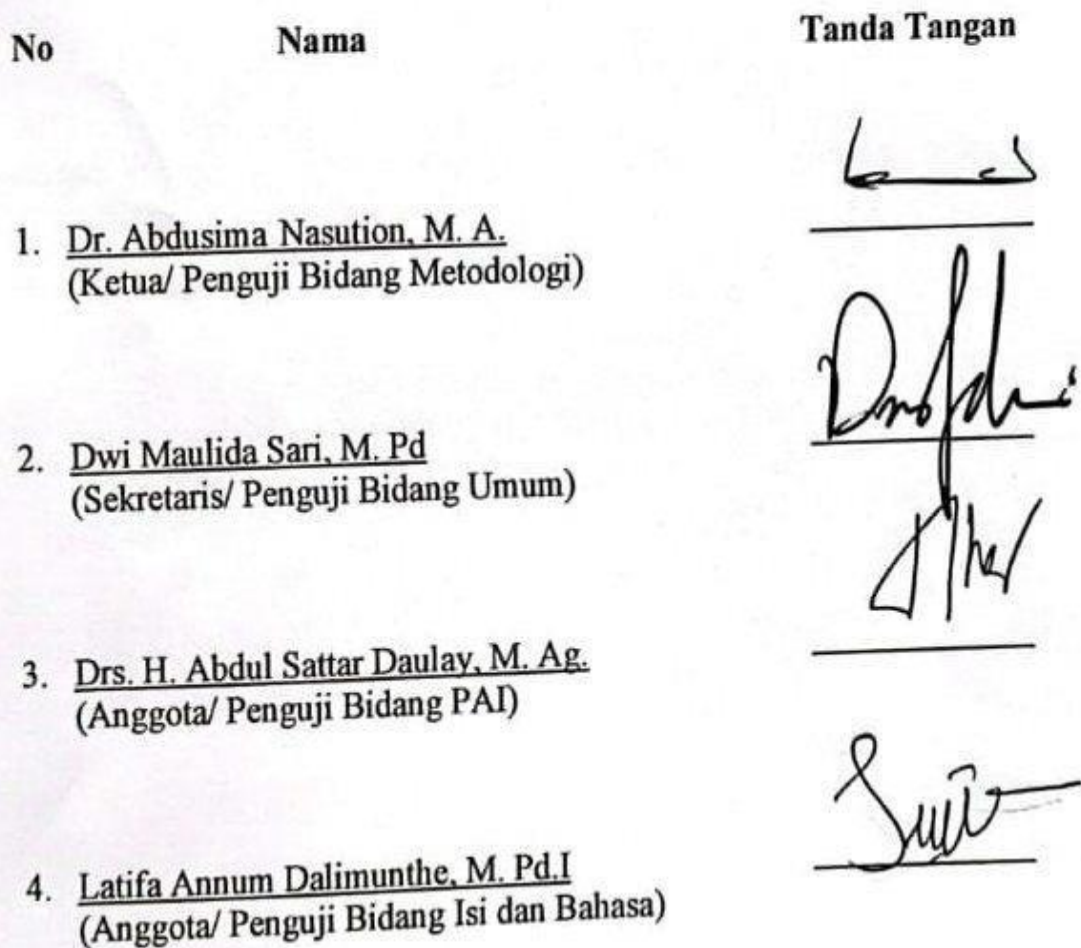 No Nama Tanda Tangan
1. Dr. Abdusima Nasution, M. A.
(Ketua/ Penguji Bidang Metodologi)
2. Dwi Maulida Sari, M. Pd
(Sekretaris/ Penguji Bidang Umum)
3. Drs. H. Abdul Sattar Daulay, M. Ag.
(Anggota/ Penguji Bidang PAI)
4. Latifa Annum Dalimunthe, M. Pd.I
(Anggota/ Penguji Bidang Isi dan Bahasa)